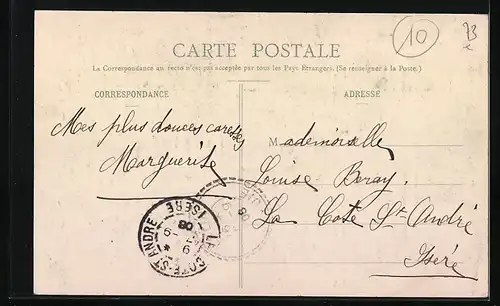 10
CARTE POSTALE
La Correspondance au recto n'est pas acceptée par tous les Pays Etrangers. (Se renseigner à la Poste.)
CORRESPONDANCE
ADRESSE
Mes plus douces caresses
Marguerite
Mademoiselle
Louise Beray
La Côte St André
Isère
LA COTE-ST-ANDRE
ISERE
08